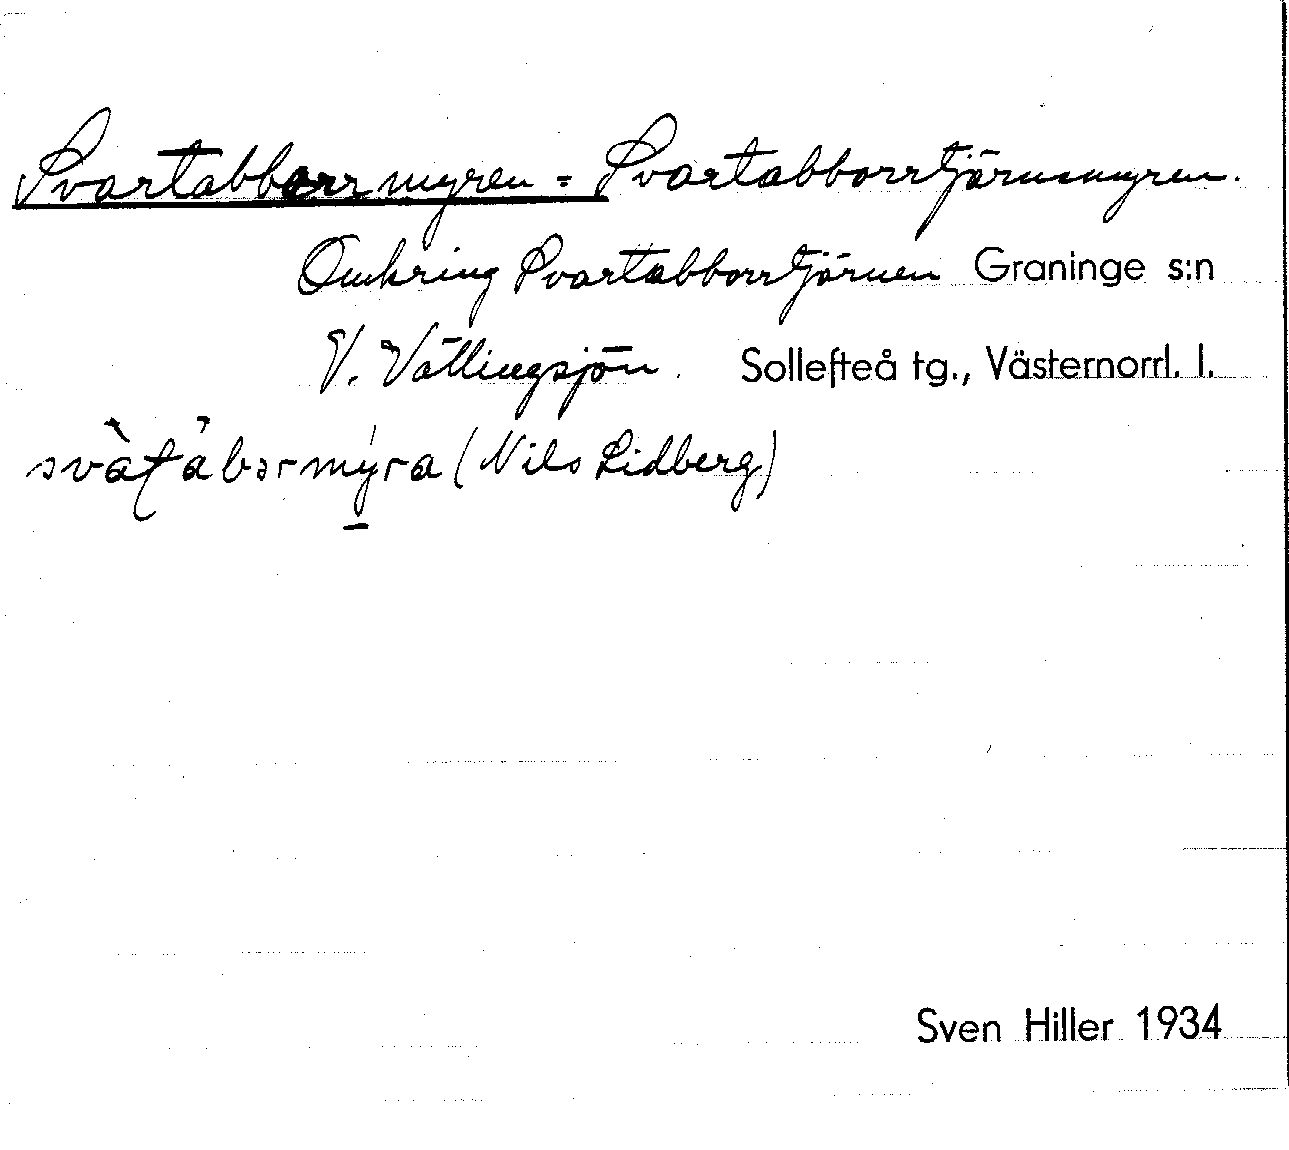 Svartabborrmyren = Svartabborrtjärnsmyren.
Omkring Svartabborrtjärnen Graninge s:n
V. Vällingsjön. Sollefteå tg., Västernorrl. l.
svàʈàbərmy̠ra (Nils Lidberg)
Sven Hiller 1934